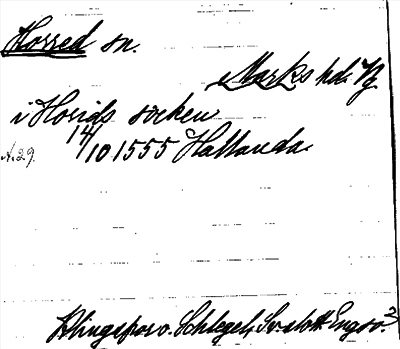 Horred sn.
Marks hd. Vg
i Horids socken
14/10 1555 Hallanda.
A.29.
Klingspor o. Schlegel, Sv. slott Engsö. 3